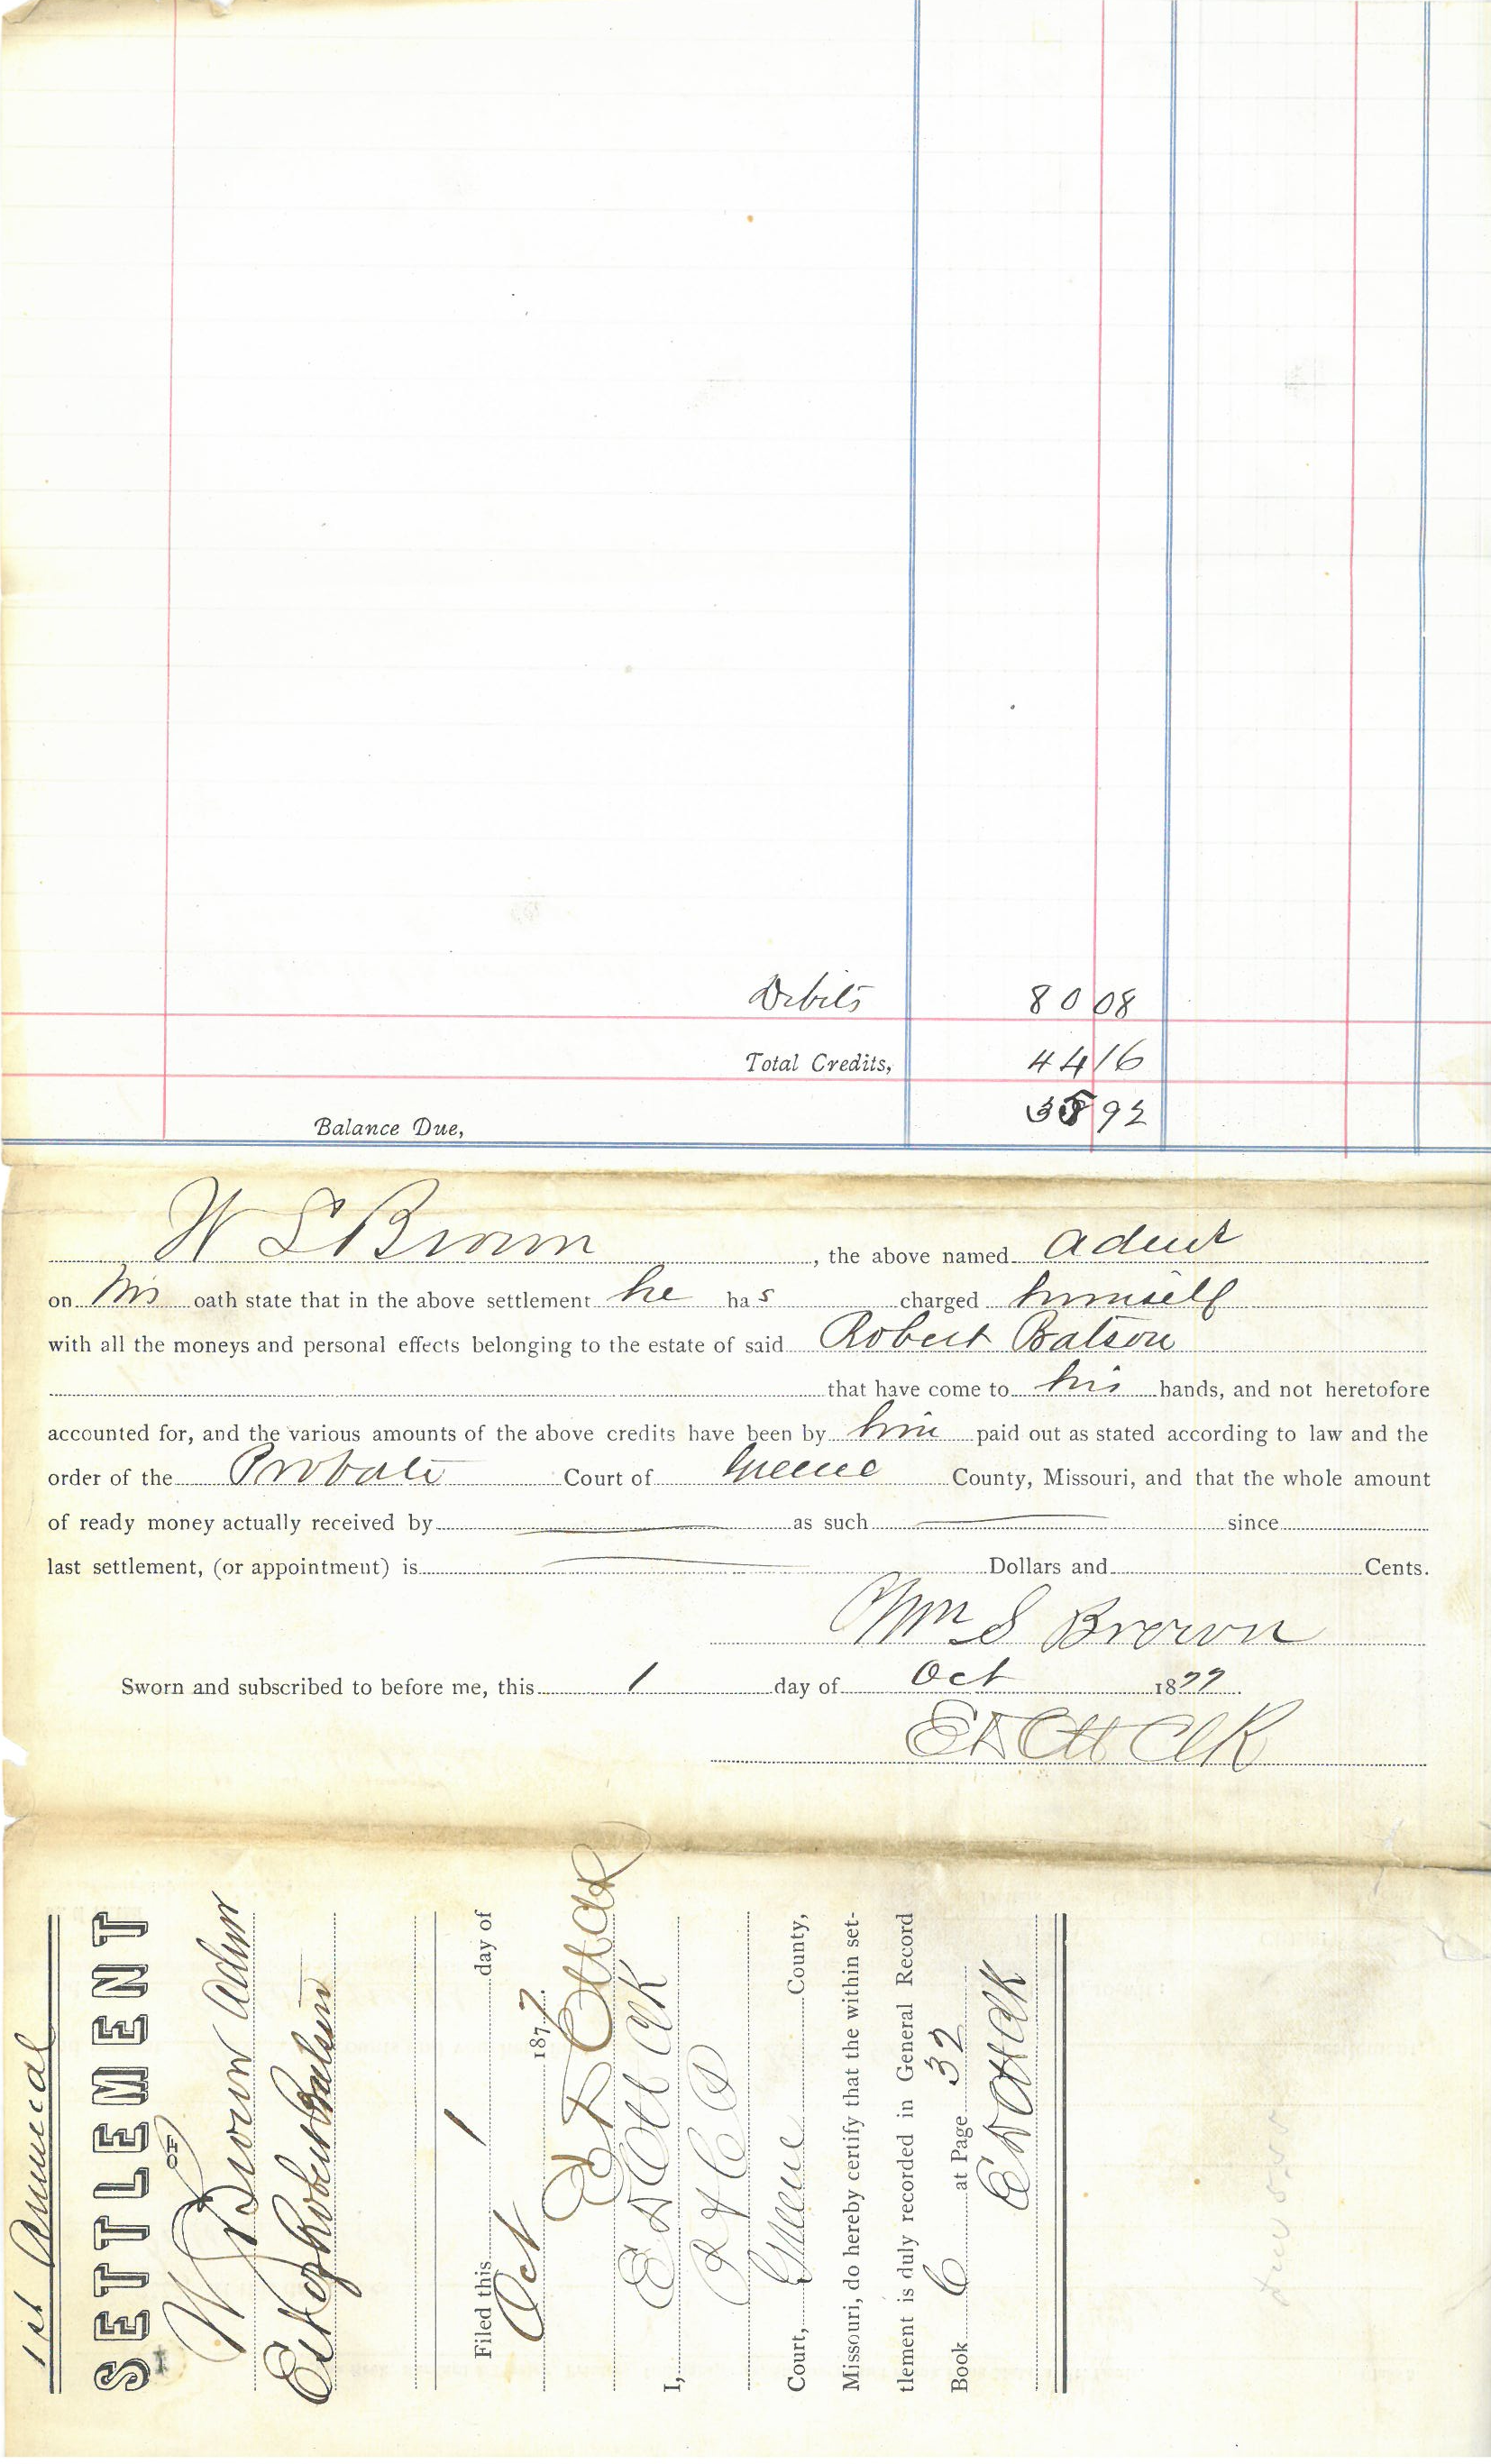 Debits 80 08
Total Credits, 44 16
35 92
Balance Due,
W S Brown, the above named Admr
on his oath state that in the above settlement he has charged himself
with all the moneys and personal effects belonging to the estate of said Robert Batson
that have come to his hands, and not heretofore
accounted for, and the various amounts of the above credits have been by him paid out as stated according to law and the
order of the Probate Court of Greene County, Missouri, and that the whole amount
of ready money actually received by as such since
last settlement, (or appointment) is Dollars and Cents.
Wm S Brown
Sworn and subscribed to before me, this 1 day of Oct 1877
E D Ott Clk
1st Annual
SETTLEMENT
OF
W S Brown Admr
Est of Robert Batson
Filed this 1 day of
Oct 1877.
E D Ott Clk
I, E D Ott Clk
Court, Greene County,
Missouri, do hereby certify that the within set-
tlement is duly recorded in General Record
Book 6 at Page 32
E D Ott Clk